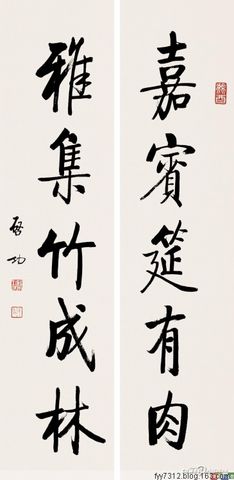 嘉賓筵有肉
雅集竹成林
啓功
fyy7312.blog.163.com